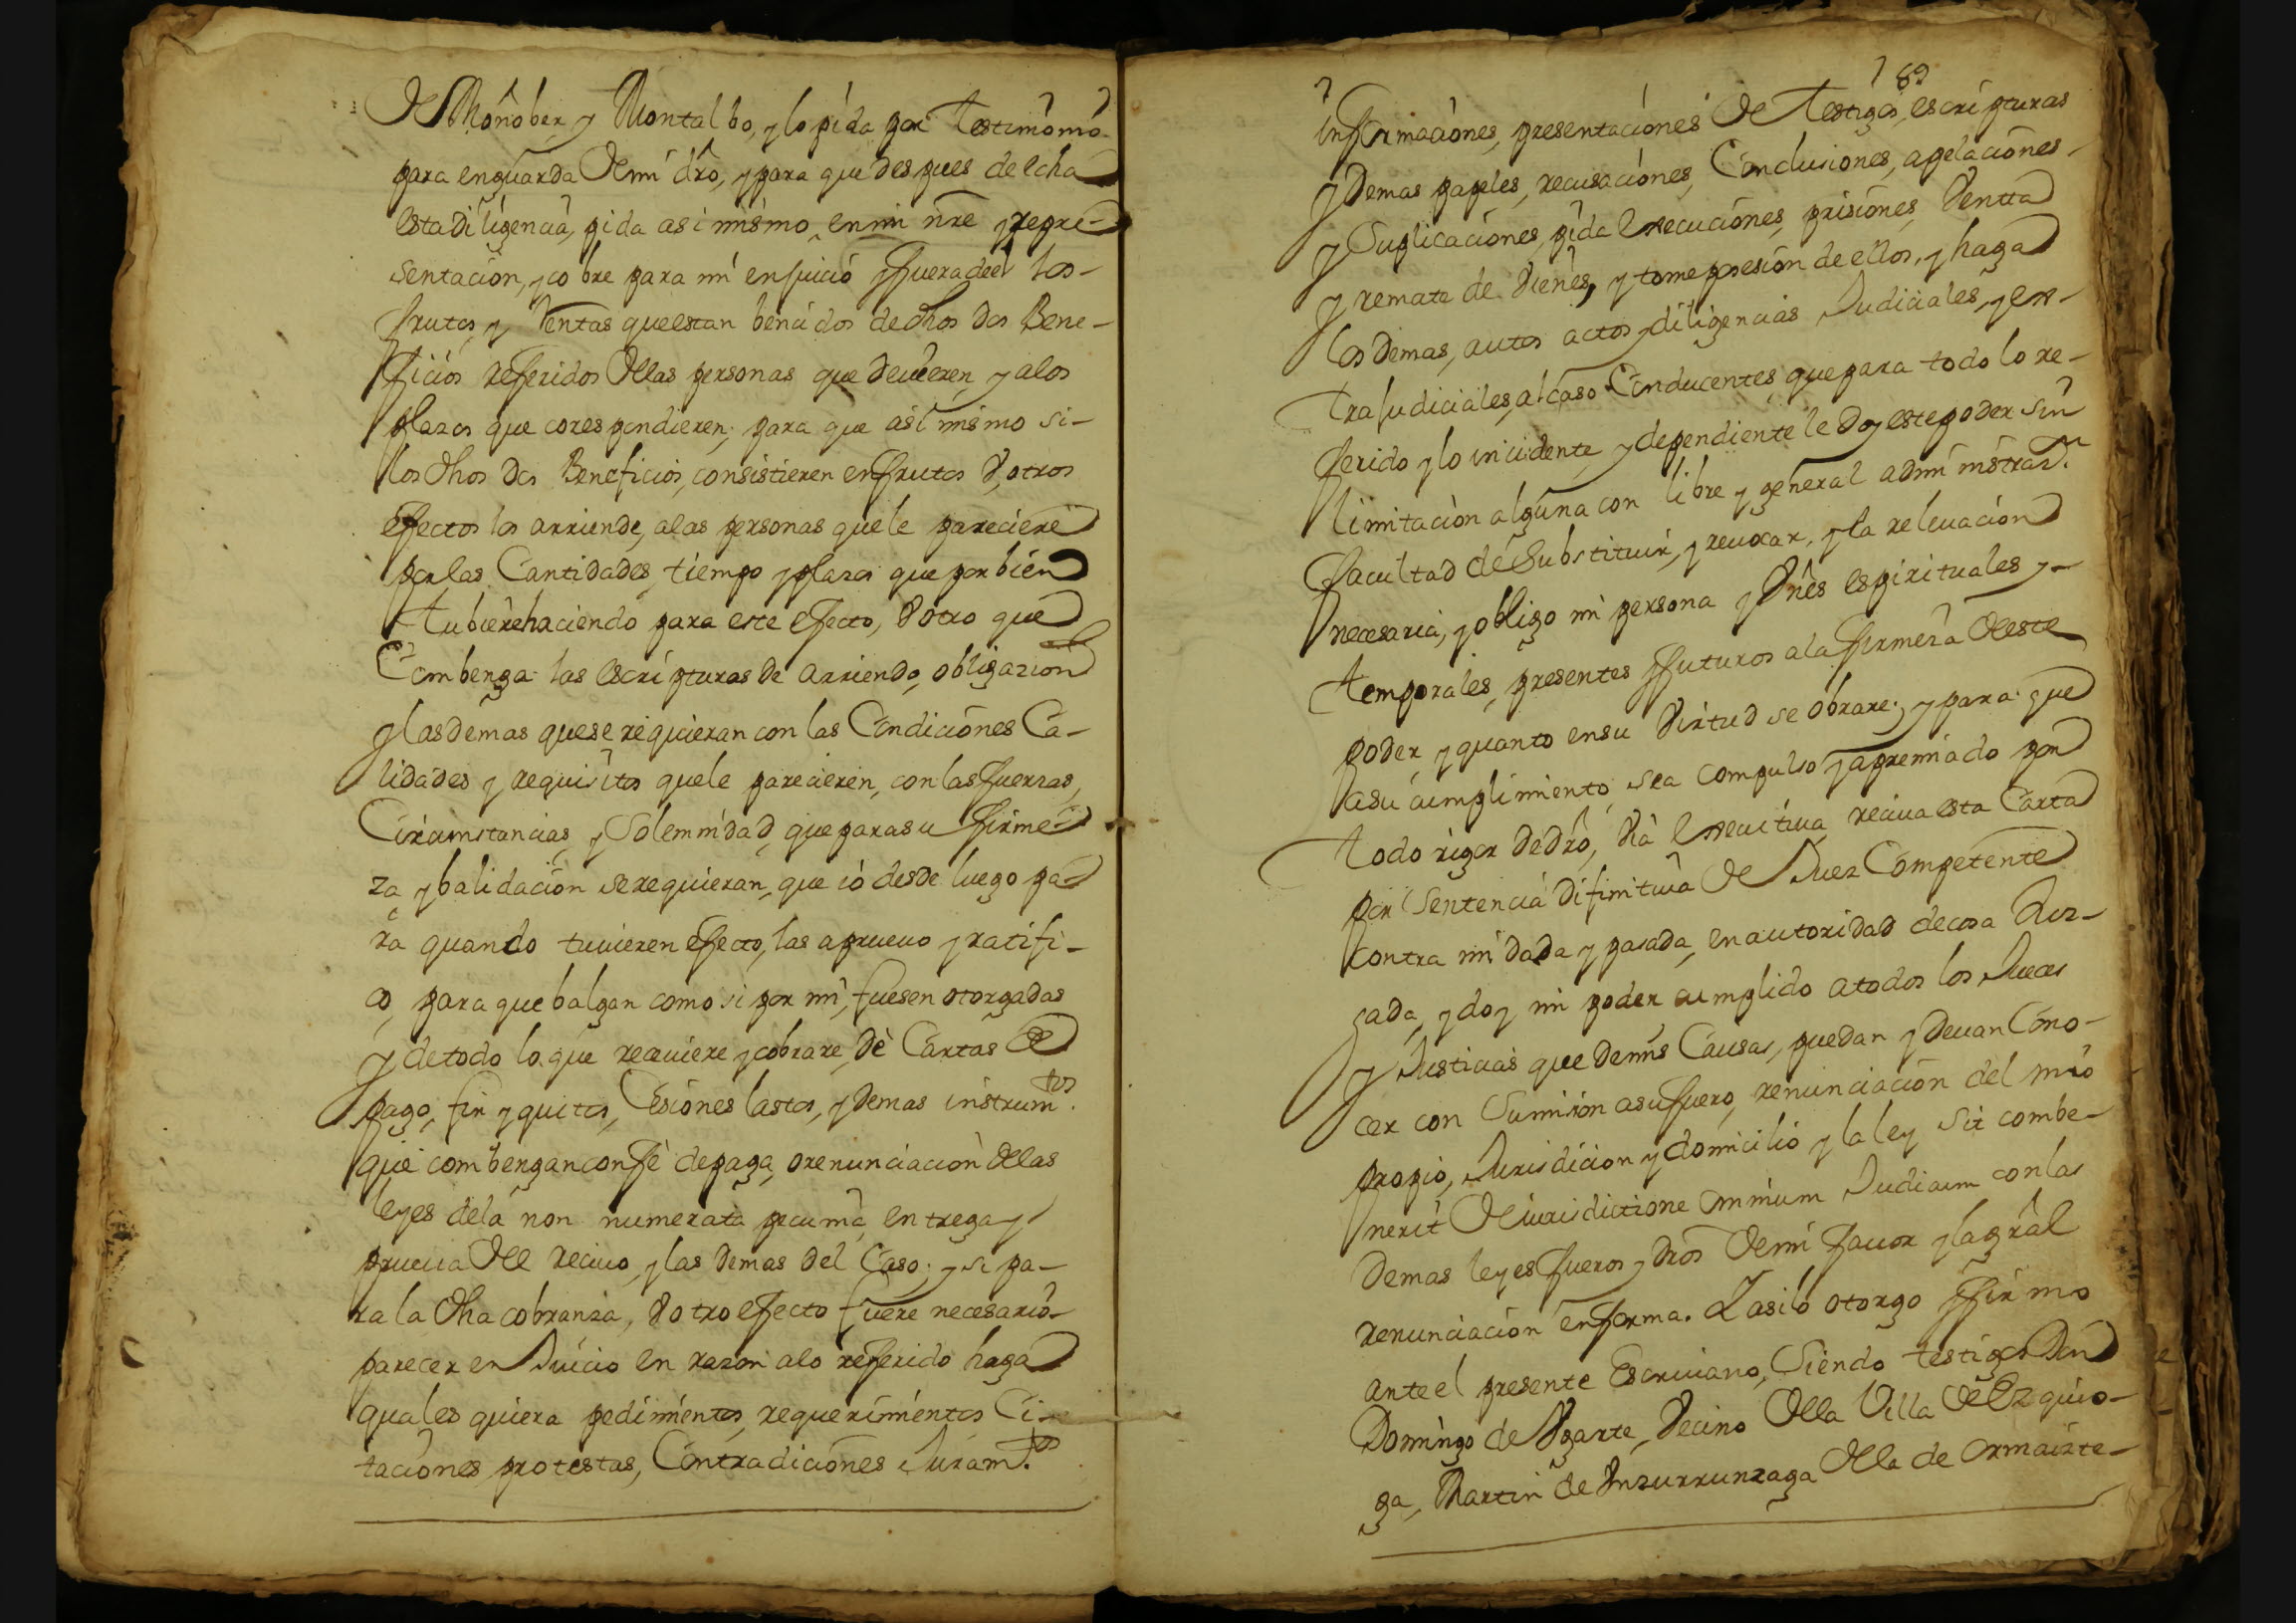 de Monober, y Montalbo, y lo pida por testimonio
para en guarda de mi dro, y para que despues de echa
esta diligencia, pida asi mismo, en mi nre y repre-
sentacion, y cobre para mi en juicio y fuera de el los-
frutos, y Rentas que estan bencidos de dhos dos Bene-
ficios referidos de las personas que devieren, y a los
plazos que corespondieren; para que asi mismo si-
los dhos dos Beneficios, consistieren en frutos v, otros
efectos los arriende, a las personas que le pareciere
por las Cantidades, tiempo y plazos que por bien
tubiere haciendo para este efecto, v otro que
Combenga las escripturas de arriendo, obligazion
y las demas que se requieran con las Condiciones Ca-
lidades y requisitos que le parecieren, con las fuerzas,
Circumstancias, y Solemnidad, que para su firme-
za, y balidacion se requieran, que io desde luego pa-
ra quando tuvieren efecto, las apruevo y ratifi-
co, para que balgan como si por mi, fuesen otorgadas
y de todo lo que reciviere y cobrare, dè Cartas de
pago, fin y quitos, Cesiones lastos, y demas instrumtos.
que combengan con fè de paga, o renunciacion de las
leyes de la non numerata pecunia, entrega y
prueva del recivo, y las demas del Caso; y si pa-
ra la dha cobranza, v otro efecto fuere necesario
parecer en Juicio en razon a lo referido haga
quales quiera pedimientos, requerimientos Ci-
taciones, protestas, Contradiciones Juramtos.
189
informaciones, presentaciones de testigos, escripturas
y demas papeles, recusaciones, Conclusiones, apelaciones-
y Suplicaciones, pida execuciones, prisiones, Ventta
y remate de vienes, y tome posesion de ellos, y haga
los demas, autos actos y diligencias Judiciales, y ex-
trajudiciales, al caso Conducentes, que para todo lo re-
ferido y lo incidente, y dependiente le doy este poder sin
limitacion alguna con libre y general administrasn.
facultad de Substituir, y revocar, y la relevacion
necesaria, y obligo mi persona y vnes espirituales y-
temporales, presentes y futuros a la firmeza de este
poder, y quanto en su virtud se obrare; y para que
a su cumplimiento, sea compulso y apremiado por
todo rigor de dro, via executiva, reciva esta Carta
por Sentencia difinitiva de Juez Competente
contra mi dada y pasada, en autoridad de cosa Juz-
gada, y doy mi poder cumplido a todos los Jueces
y Justicias que de mis Causas, puedan y devan Cono-
cer con Sumision a su fuero, renunciacion del mio
propio, Jurisdicion y domicilio y la ley sit combe-
nerit de iurisdictione omnium Judicum con las
demas leyes fueros, y dros de mi favor y la gral
renunciacion en forma. Y asi lo otorgo y firmo
ante el presente Escrivano, Siendo testigos Don
Domingo de Vgarte, Vecino de la Villa de Ezquio-
ga, Martin de Inzurrunzaga de la de Ormaizte-